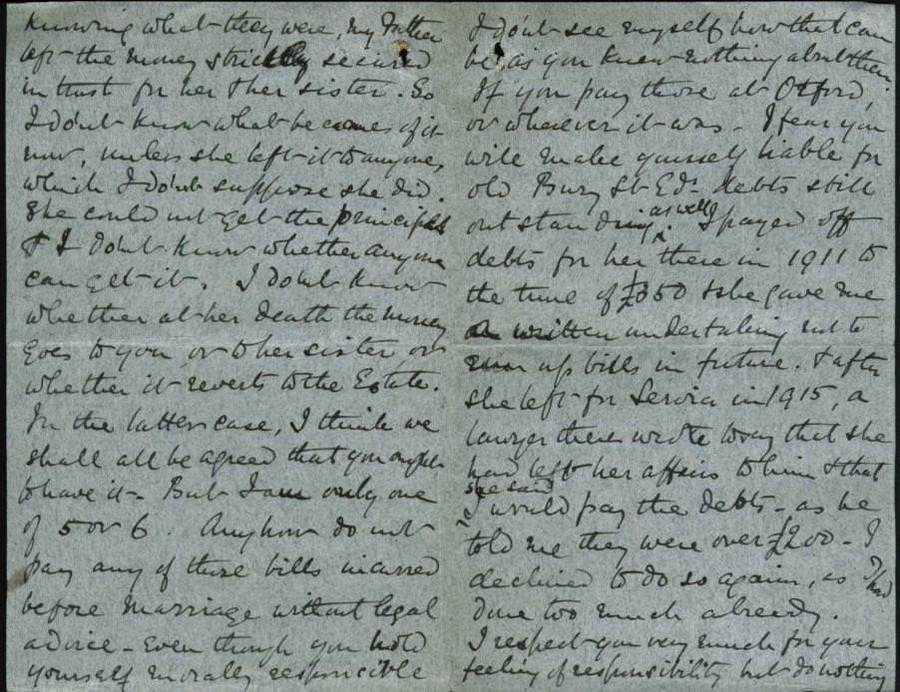 knowing what they were, my Father
left the money strictly secured
in trust for her & her sister. So
I don't know what becomes of it
now, unless she left it to anyone,
which I don't suppose she did.
She could not get the principal
& I don't know whether anyone
can get it. I don't know
whether at her death the money
goes to you or to her sister or
whether it reverts to the Estate.
In the latter case, I think we
shall all be agreed that you ought
to have it - But I am only one
of 5 or 6. Anyhow do not
pay any of these bills incurred
before marriage without legal
advice - Even though you hold
yourself morally responsible
I don't see myself how that can
be, as you knew nothing about them.
If you pay those at Oxford,
or wherever it was - I fear you
will make yourself liable for
old Bury St Eds debts still
outstanding as well. I payed off
debts for her there in 1911 to
the tune of £350 & she gave me
a written undertaking not to
run up bills in future. & after
she left for Servia in 1915, a
lawyer there wrote to say that she
had left her affairs to him & that
she said
I would pay the debts - as he
told me they were over £200 - I
declined to do so again, as I had
done too much already.
I respect you very much for your
feeling of responsibility but do nothing